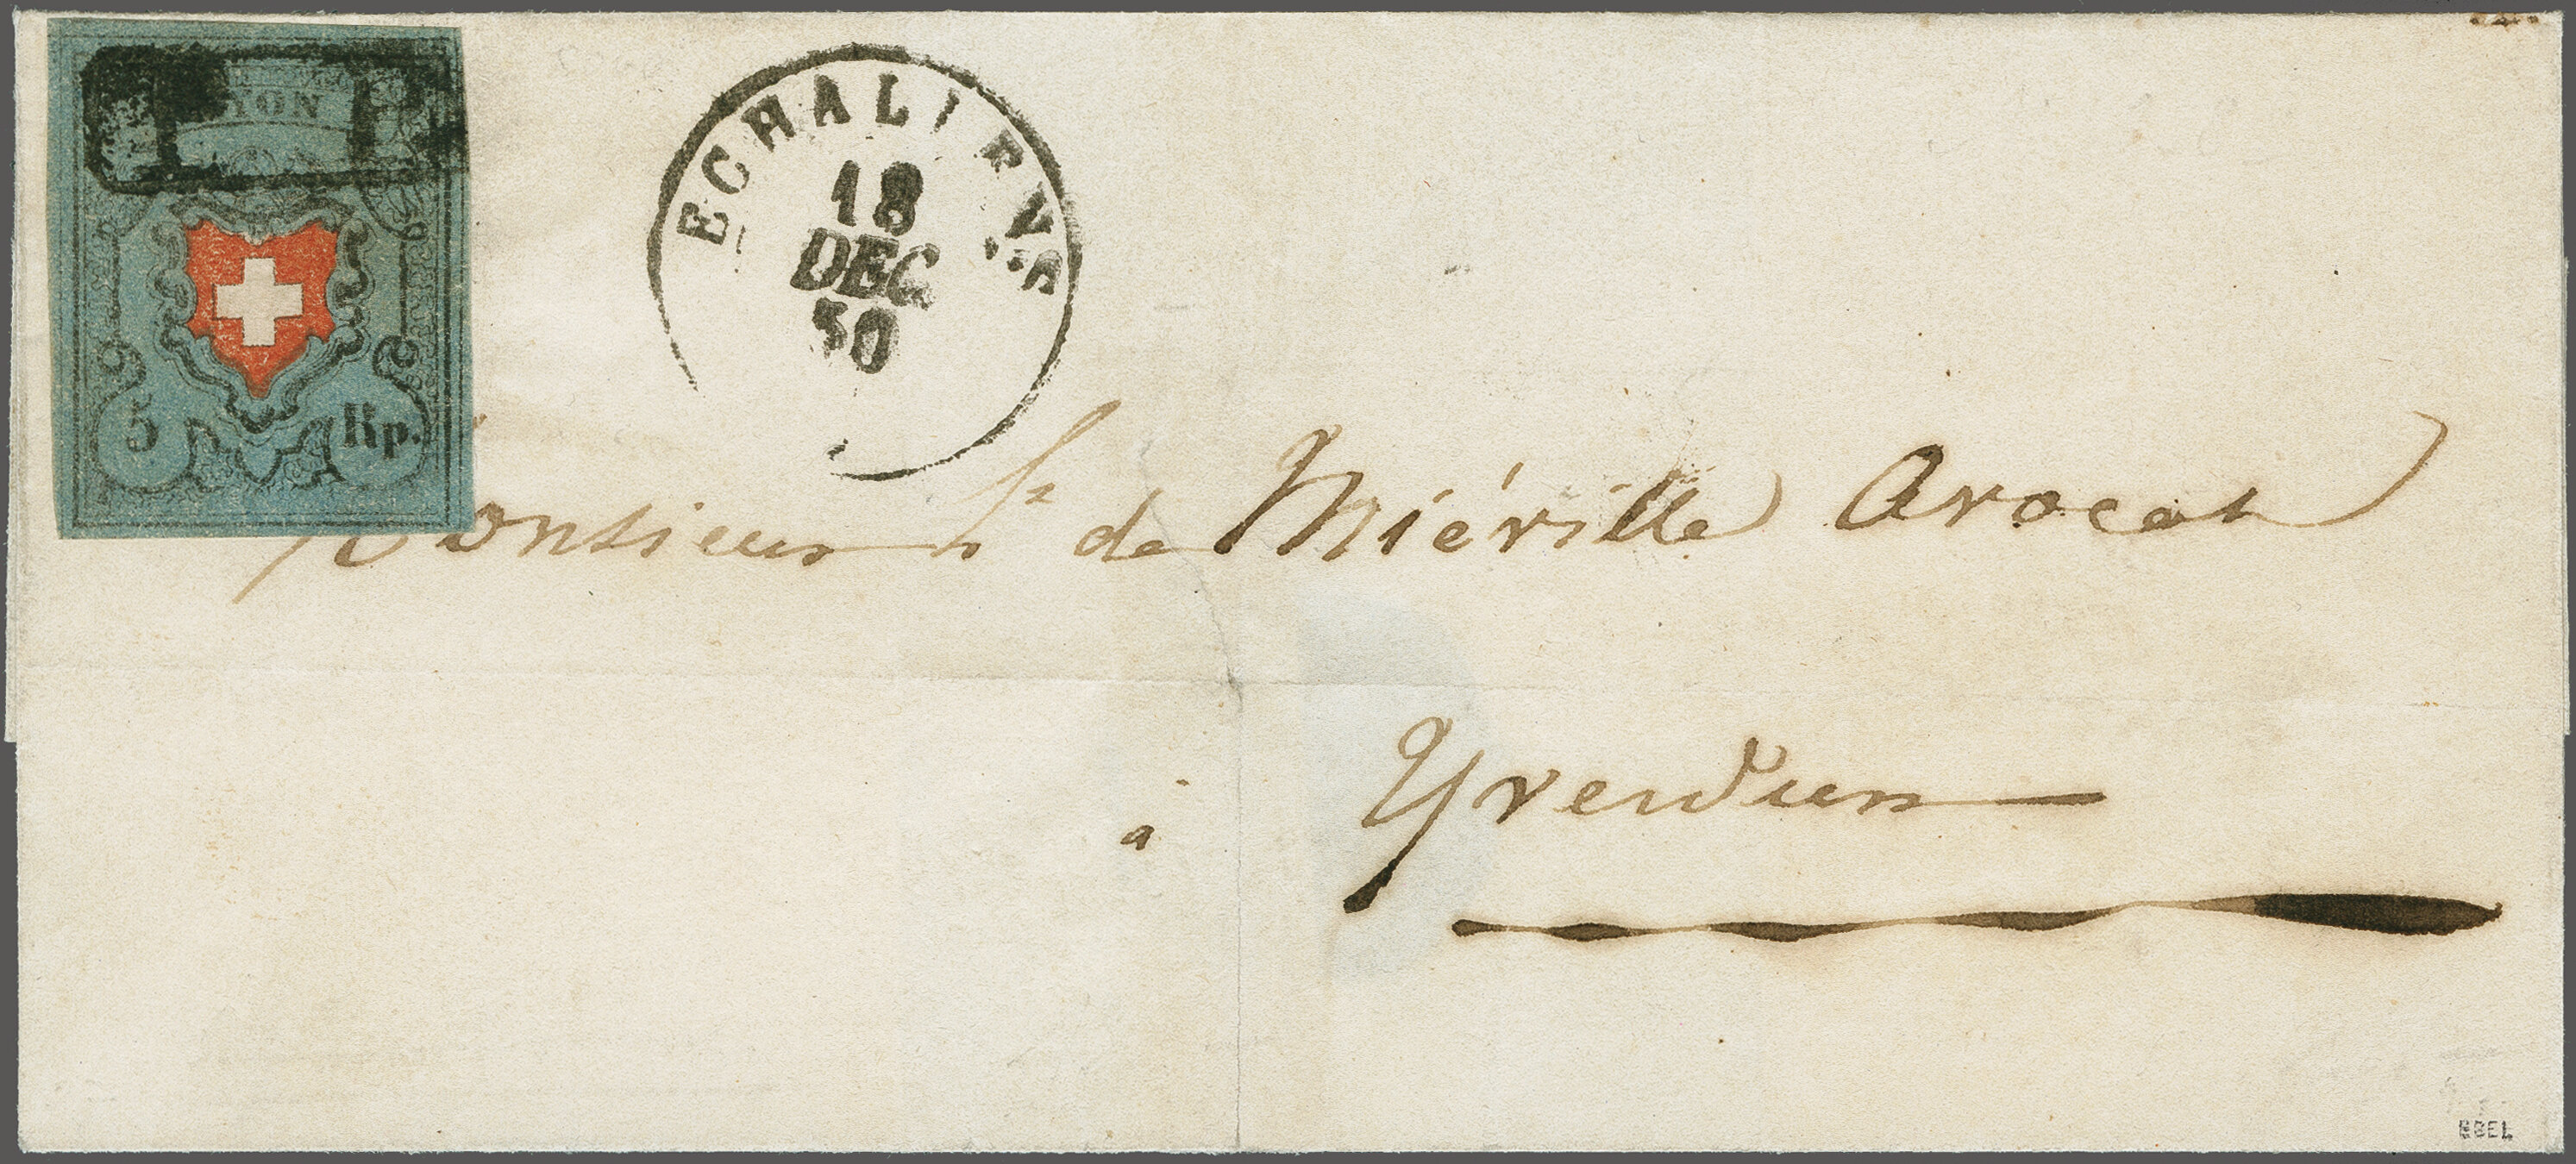 PD
YON
5 Rp.
ECHALLENS
18
DEC
50
Monsieur de Miéville Avocat
à
Yverdun
EBEL